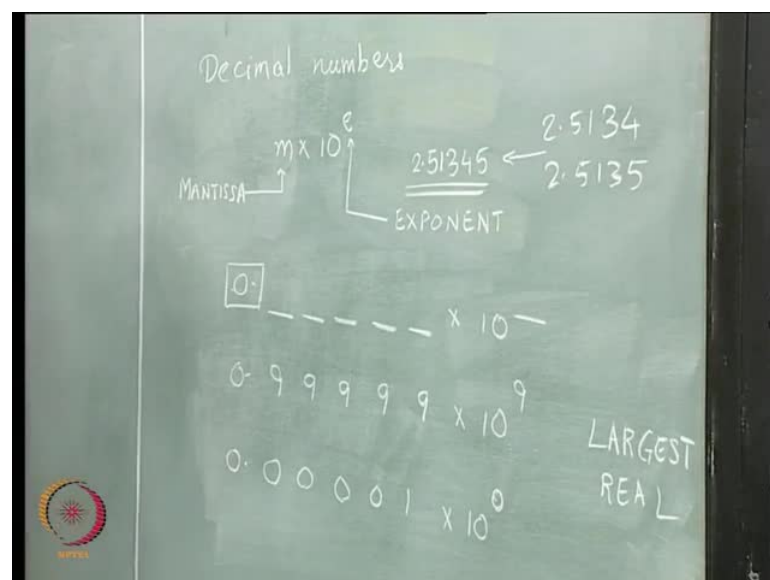 Decimal numbers
m × 10^e
MANTISSA
EXPONENT
2.51345 ← 2.5134
2.5135
0. _ _ _ _ _ × 10^_
0. 9 9 9 9 9 × 10^9
LARGEST
REAL
0. 0 0 0 0 1 × 10^0
NPTEL